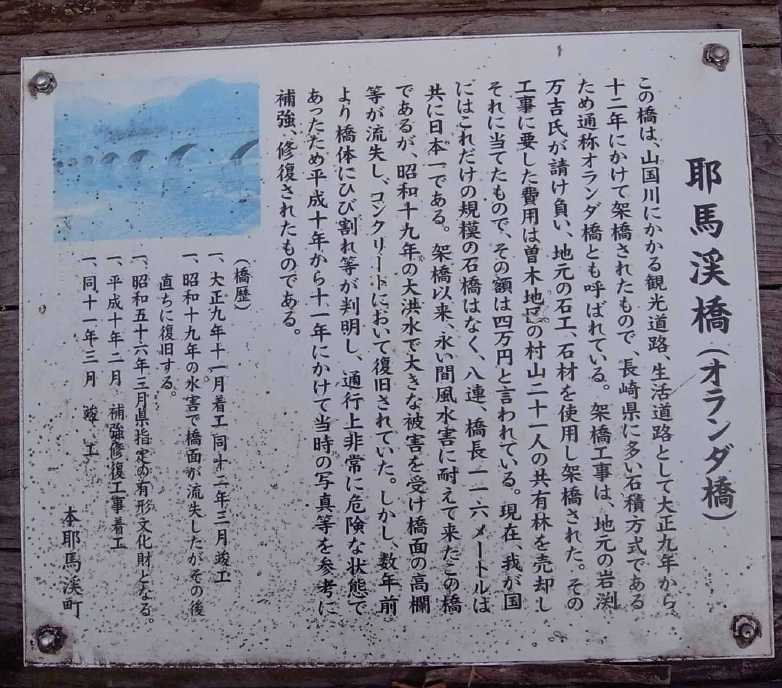 耶馬渓橋(オランダ橋)
この橋は、山国川にかかる観光道路、生活道路として大正九年から
十二年にかけて架橋されたもので、長崎県に多い石積方式である
ため通称オランダ橋とも呼ばれている。架橋工事は、地元の岩渕
万吉氏が請け負い、地元の石工、石材を使用し架橋された。その
工事に要した費用は曽木地区の村山二十一人の共有林を売却し
それに当てたもので、その額は四万円と言われている。現在、我が国
にはこれだけの規模の石橋はなく、八連、橋長一一六メートルは
共に日本一である。架橋以来、永い間風水害に耐えて来たこの橋
であるが、昭和十九年の大洪水で大きな被害を受け橋面の高欄
等が流失し、コンクリートにおいて復旧されていた。しかし、数年前
より橋体にひび割れ等が判明し、通行上非常に危険な状態で
あったため平成十年から十一年にかけて当時の写真等を参考に
補強、修復されたものである。
(橋歴)
一、大正九年十一月着工 同十二年三月竣工
一、昭和十九年の水害で橋面が流失したがその後
直ちに復旧する。
一、昭和五十六年三月県指定の有形文化財となる。
一、平成十年二月 補強修復工事着工
一、同十一年三月 竣工
本耶馬渓町